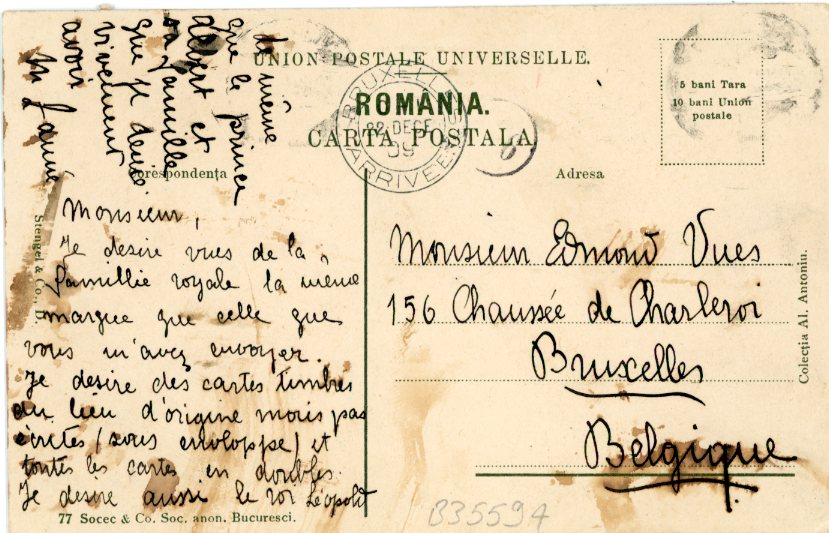 UNION POSTALE UNIVERSELLE.
ROMÂNIA.
CARTA POSTALA
5 bani Tara
10 bani Union
postale
BRUXELLES
22 DECE
09
ARRIVEE
6
Corespondența
Adresa
Monsieur,
Je desire vues de la
famillie royale la même
marque que celle que
vous m'avez envoyer.
Je desire des cartes timbres
au lieu d'origine mais pas
écrites (sous enveloppe) et
toutes les cartes en doubles.
Je desire aussi le roi Léopold
la même
que le prince
Albert et
sa famille
que je desire
vivement
avoir
Monsieur Edmond Vues
156 Chaussée de Charleroi
Bruxelles
Belgique
Stengel & Co., D.
Colecția Al. Antoniu.
77 Socec & Co. Soc. anon. Bucuresci.
B35594